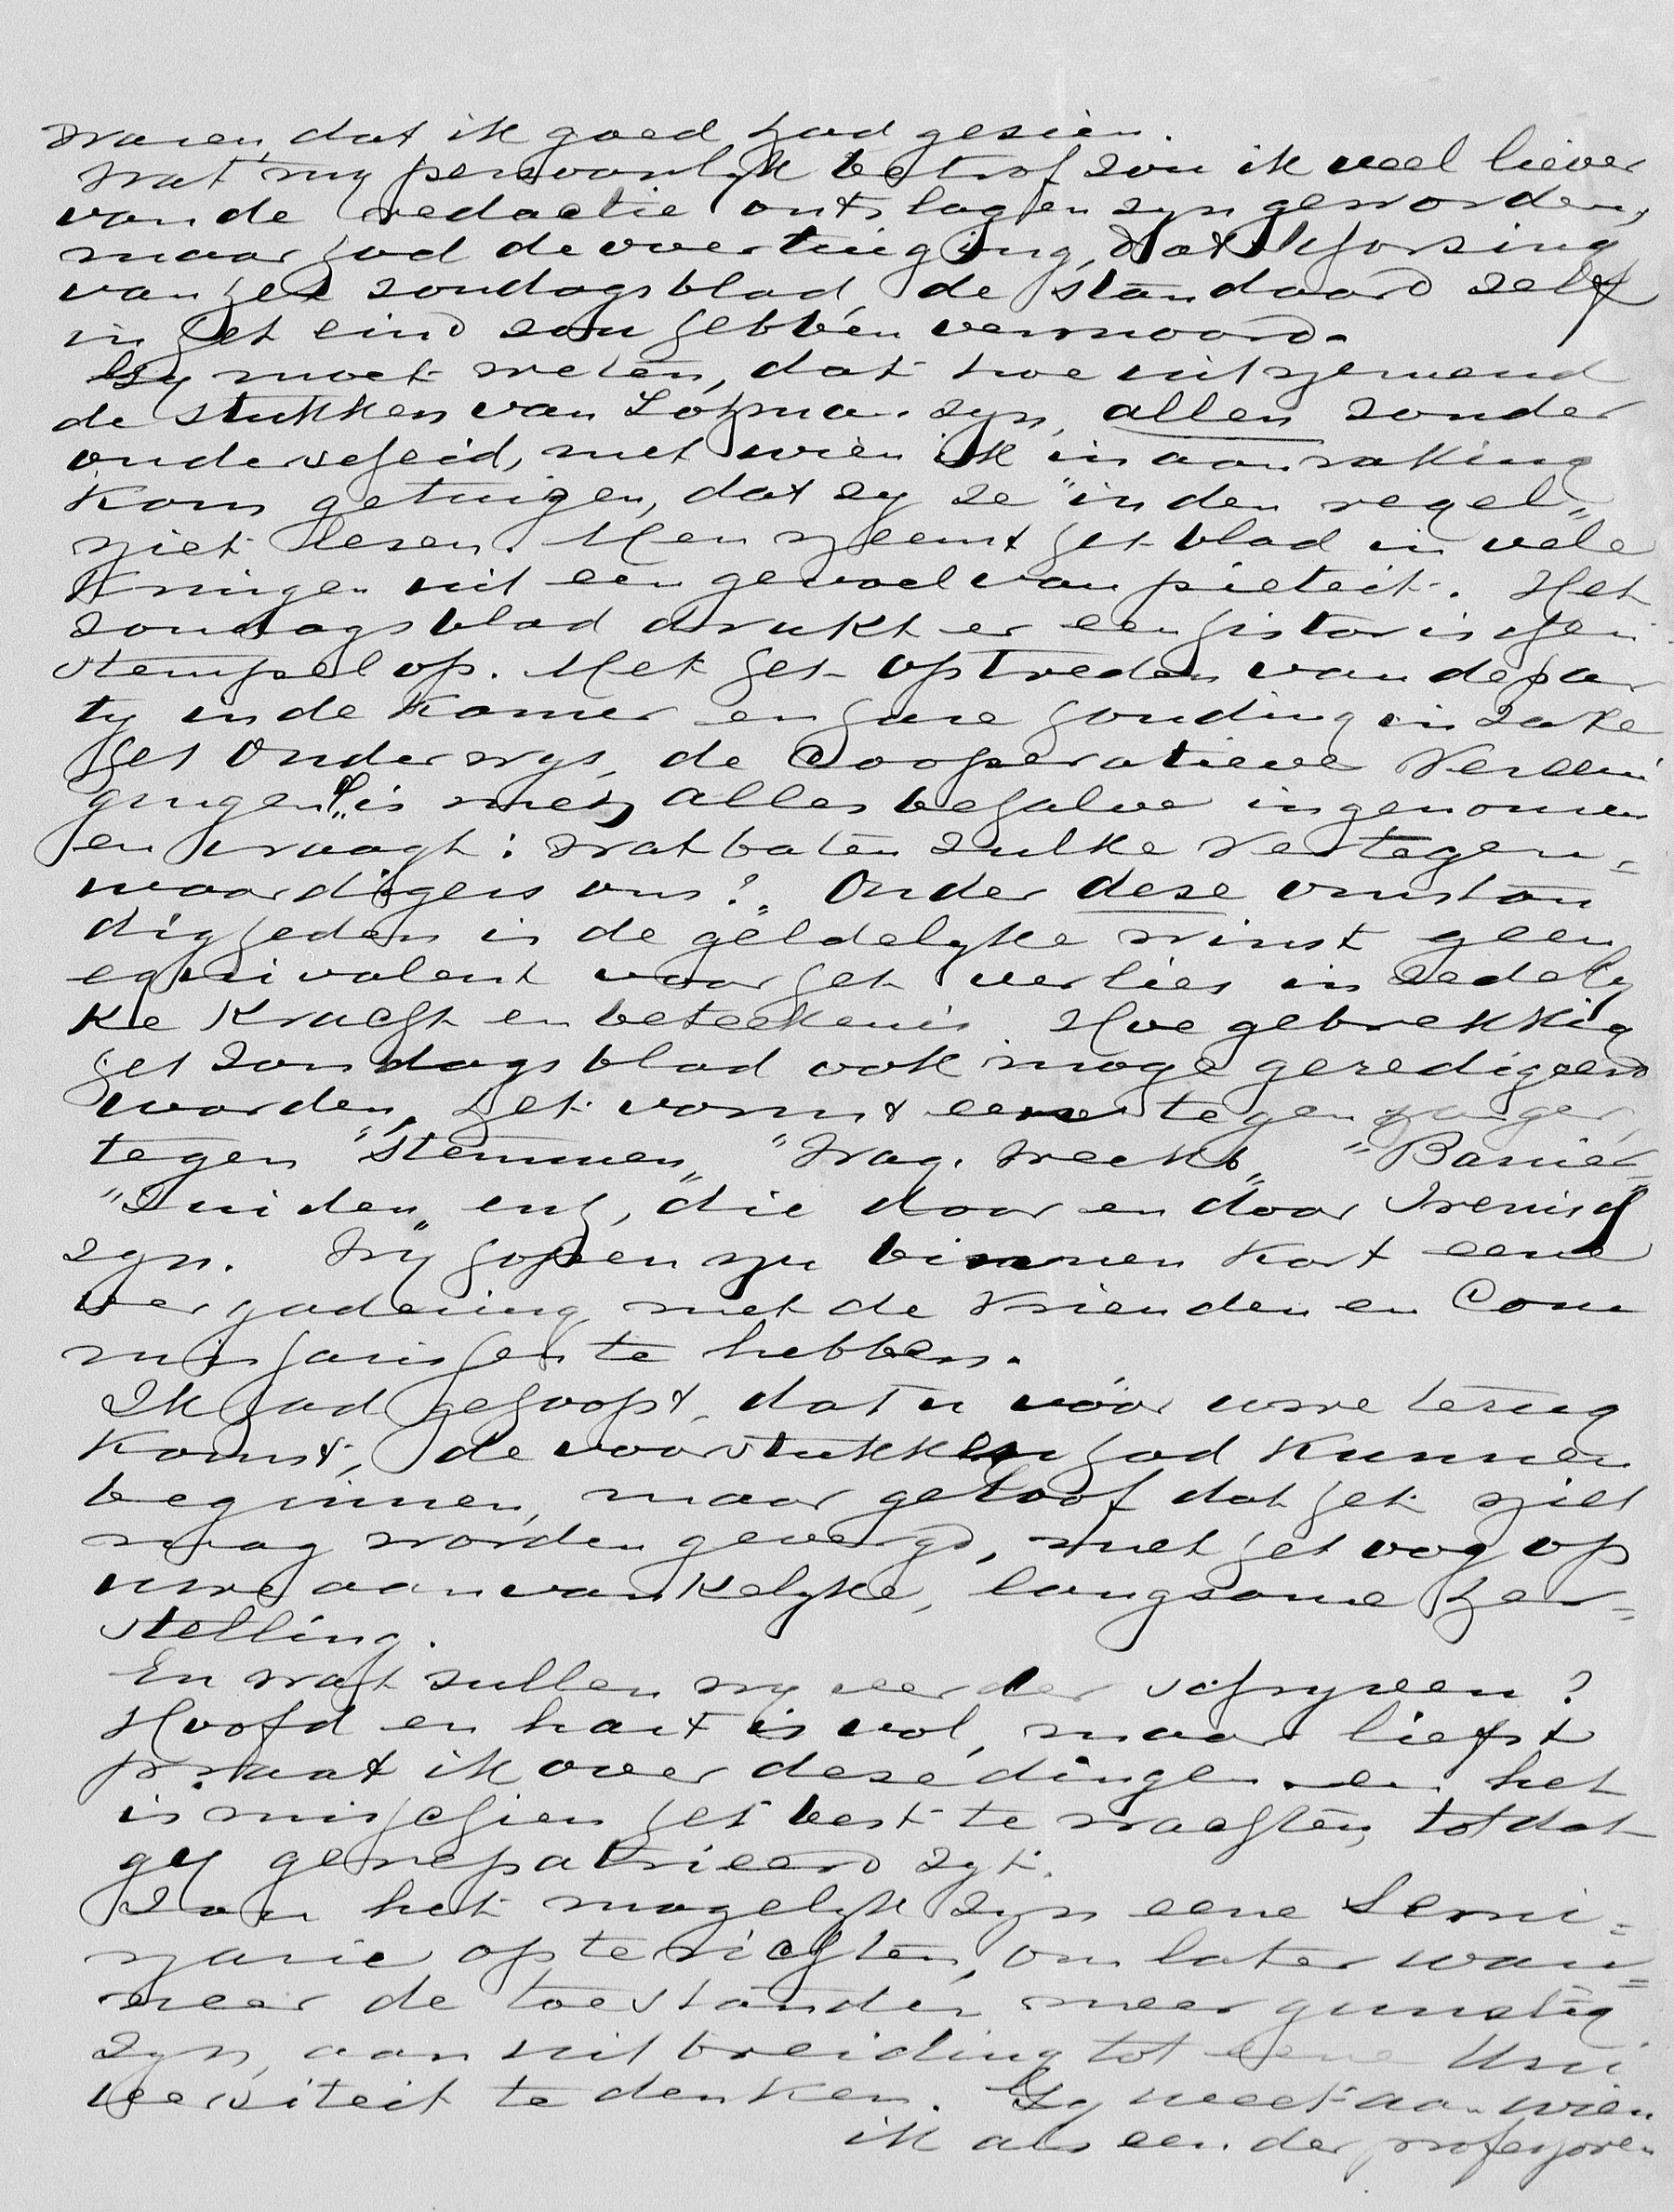 waren, dat ik goed had gezien.
Wat my persoonlyk betrof zou ik veel liever
van de redactie ontslagen zyn geworden,
maar had de overtuiging, dat schorsing
van het Zondagsblad, de Standaard zelf
in het eind zou hebben vermoord.
Gy moet weten, dat hoe uitnemend
de stukken van Lohman zyn, allen zonder
onderscheid, met wien ik in aanraking
kom getuigen, dat zy ze "in den regel"
niet lezen. Men neemt het blad in vele
Kringen uit een gevoel van pieteit. Het
Zondagsblad drukt er een historischen
stempel op. Met het optreden van de par
ty in de Kamer en hare houding in zake
het Onderwys, de Cooperatieve Vereeni
gingen is men alles behalve ingenomen
en vraagt: wat baten zulke Vertegen=
woordigers ons?" Onder deze omstan
digheden is de geldelyke winst geen
equivalent voor het verlies in zedely
ke Kracht en beteekenis Hoe gebrekkig
het Zondagsblad ook moge geredigeerd
worden, het vormt eene tegenhanger,
tegen "Stemmen", "Wag. Weekb", "Banier"
"Zuiden" enz, die door en door Irenisch
zyn. Wy hopen nu binnen kort eene
vergadering met de Vrienden en Com
missarissen te hebben.
Ik had gehoopt, dat u vóór uwe terug
komst, de voorstukken had kunnen
beginnen, maar geloof dat het niet
mag worden gevergd, met het oog op
uwe aanvankelyke, langzame her=
stelling.
En wat zullen wy verder schryven?
Hoofd en hart is vol, maar liefst
praat ik over deze dingen en het
is misschien het best te wachten, totdat
gy gerepatrieerd zyt.
Zou het mogelyk zyn eene Semi=
narie op te richten, om later wan=
neer de toestanden meer gunstig
zyn, aan uitbreiding tot eene Uni
versiteit te denken. Gy weet aan wien
ik als een der professoren